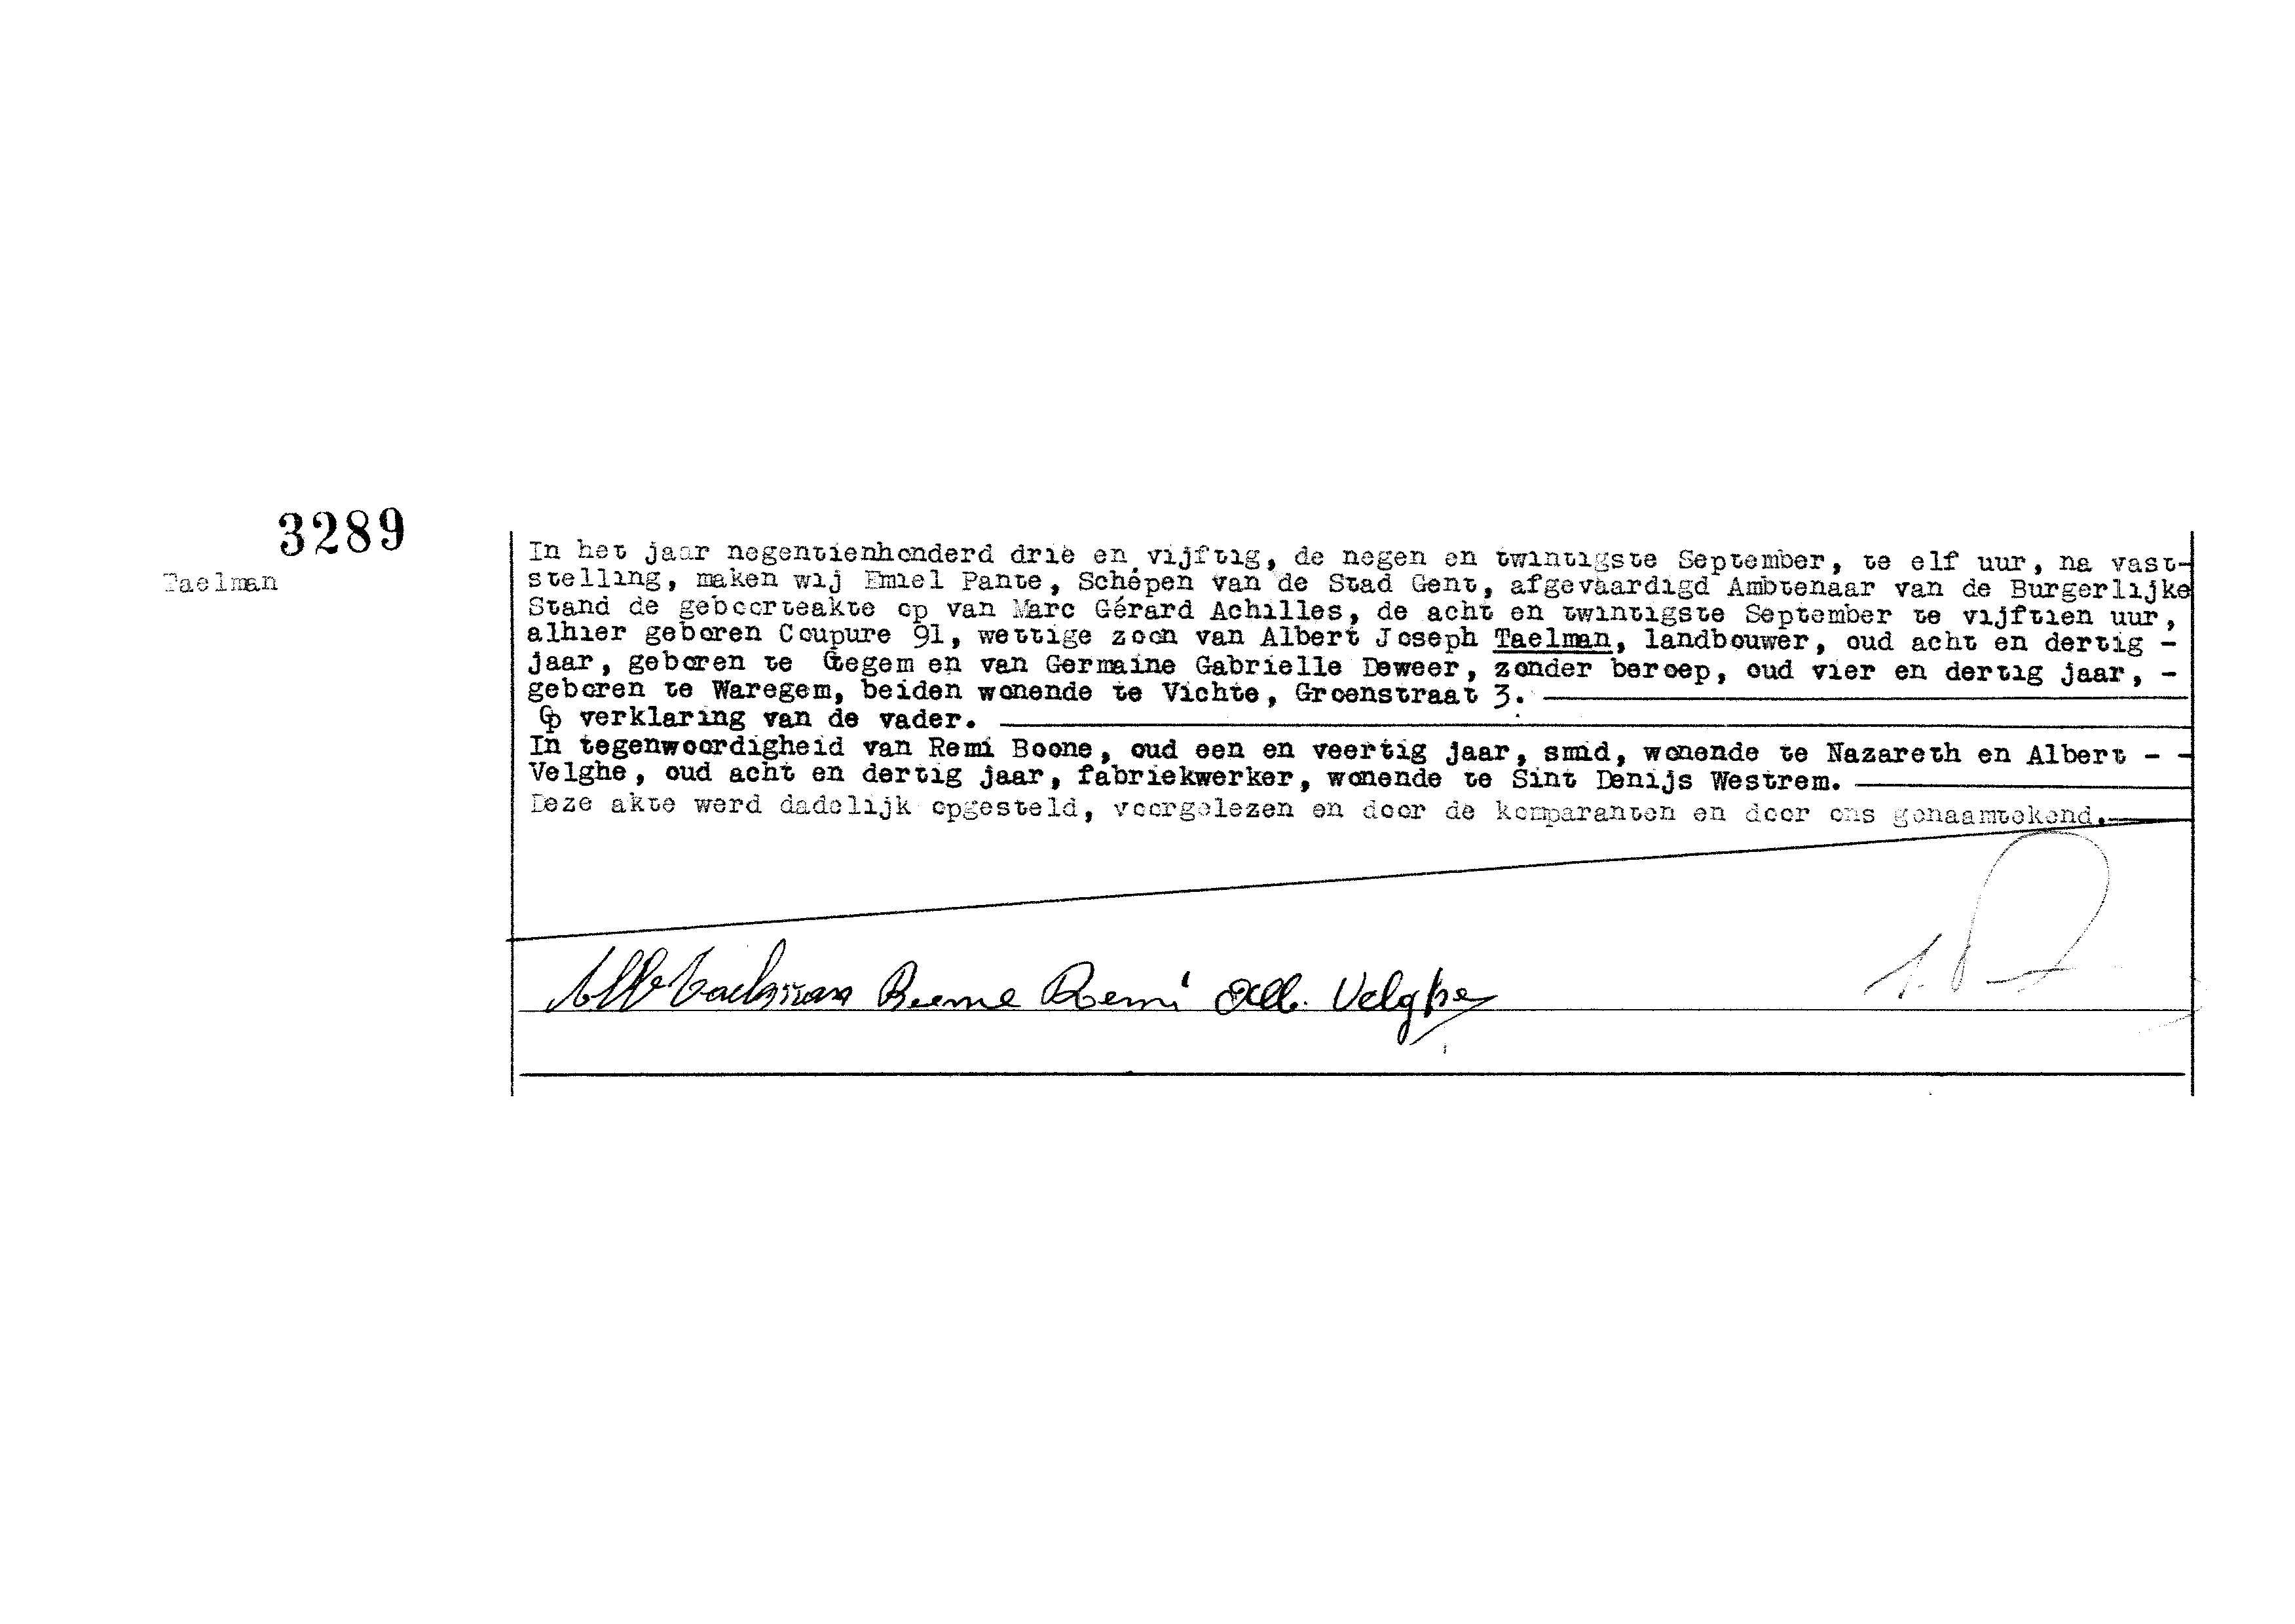 3289
Taelman
In het jaar negentienhonderd drie en vijftig, de negen en twintigste September, te elf uur, na vast-
stelling, maken wij Emiel Pante, Schepen van de Stad Gent, afgevaardigd Ambtenaar van de Burgerlijke
Stand de geboorteakte op van Marc Gérard Achilles, de acht en twintigste September te vijftien uur,
alhier geboren Coupure 91, wettige zoon van Albert Joseph Taelman, landbouwer, oud acht en dertig -
jaar, geboren te en van Germaine Gabrielle Deweer, zonder beroep, oud vier en dertig jaar, -
geboren te Waregem, beiden wonende te Vichte, Groenstraat 3.
Op verklaring van de vader.
In tegenwoordigheid van Remi Boone, oud een en veertig jaar, smid, wonende te Nazareth en Albert - -
Velghe, oud acht en dertig jaar, fabriekwerker, wonende te Sint Denijs Westrem.
Deze akte werd dadelijk opgesteld, voorgelezen en door de komparanten en door ons genaamtekend.
Alb Taelman Boone Remi Alb. Velghe